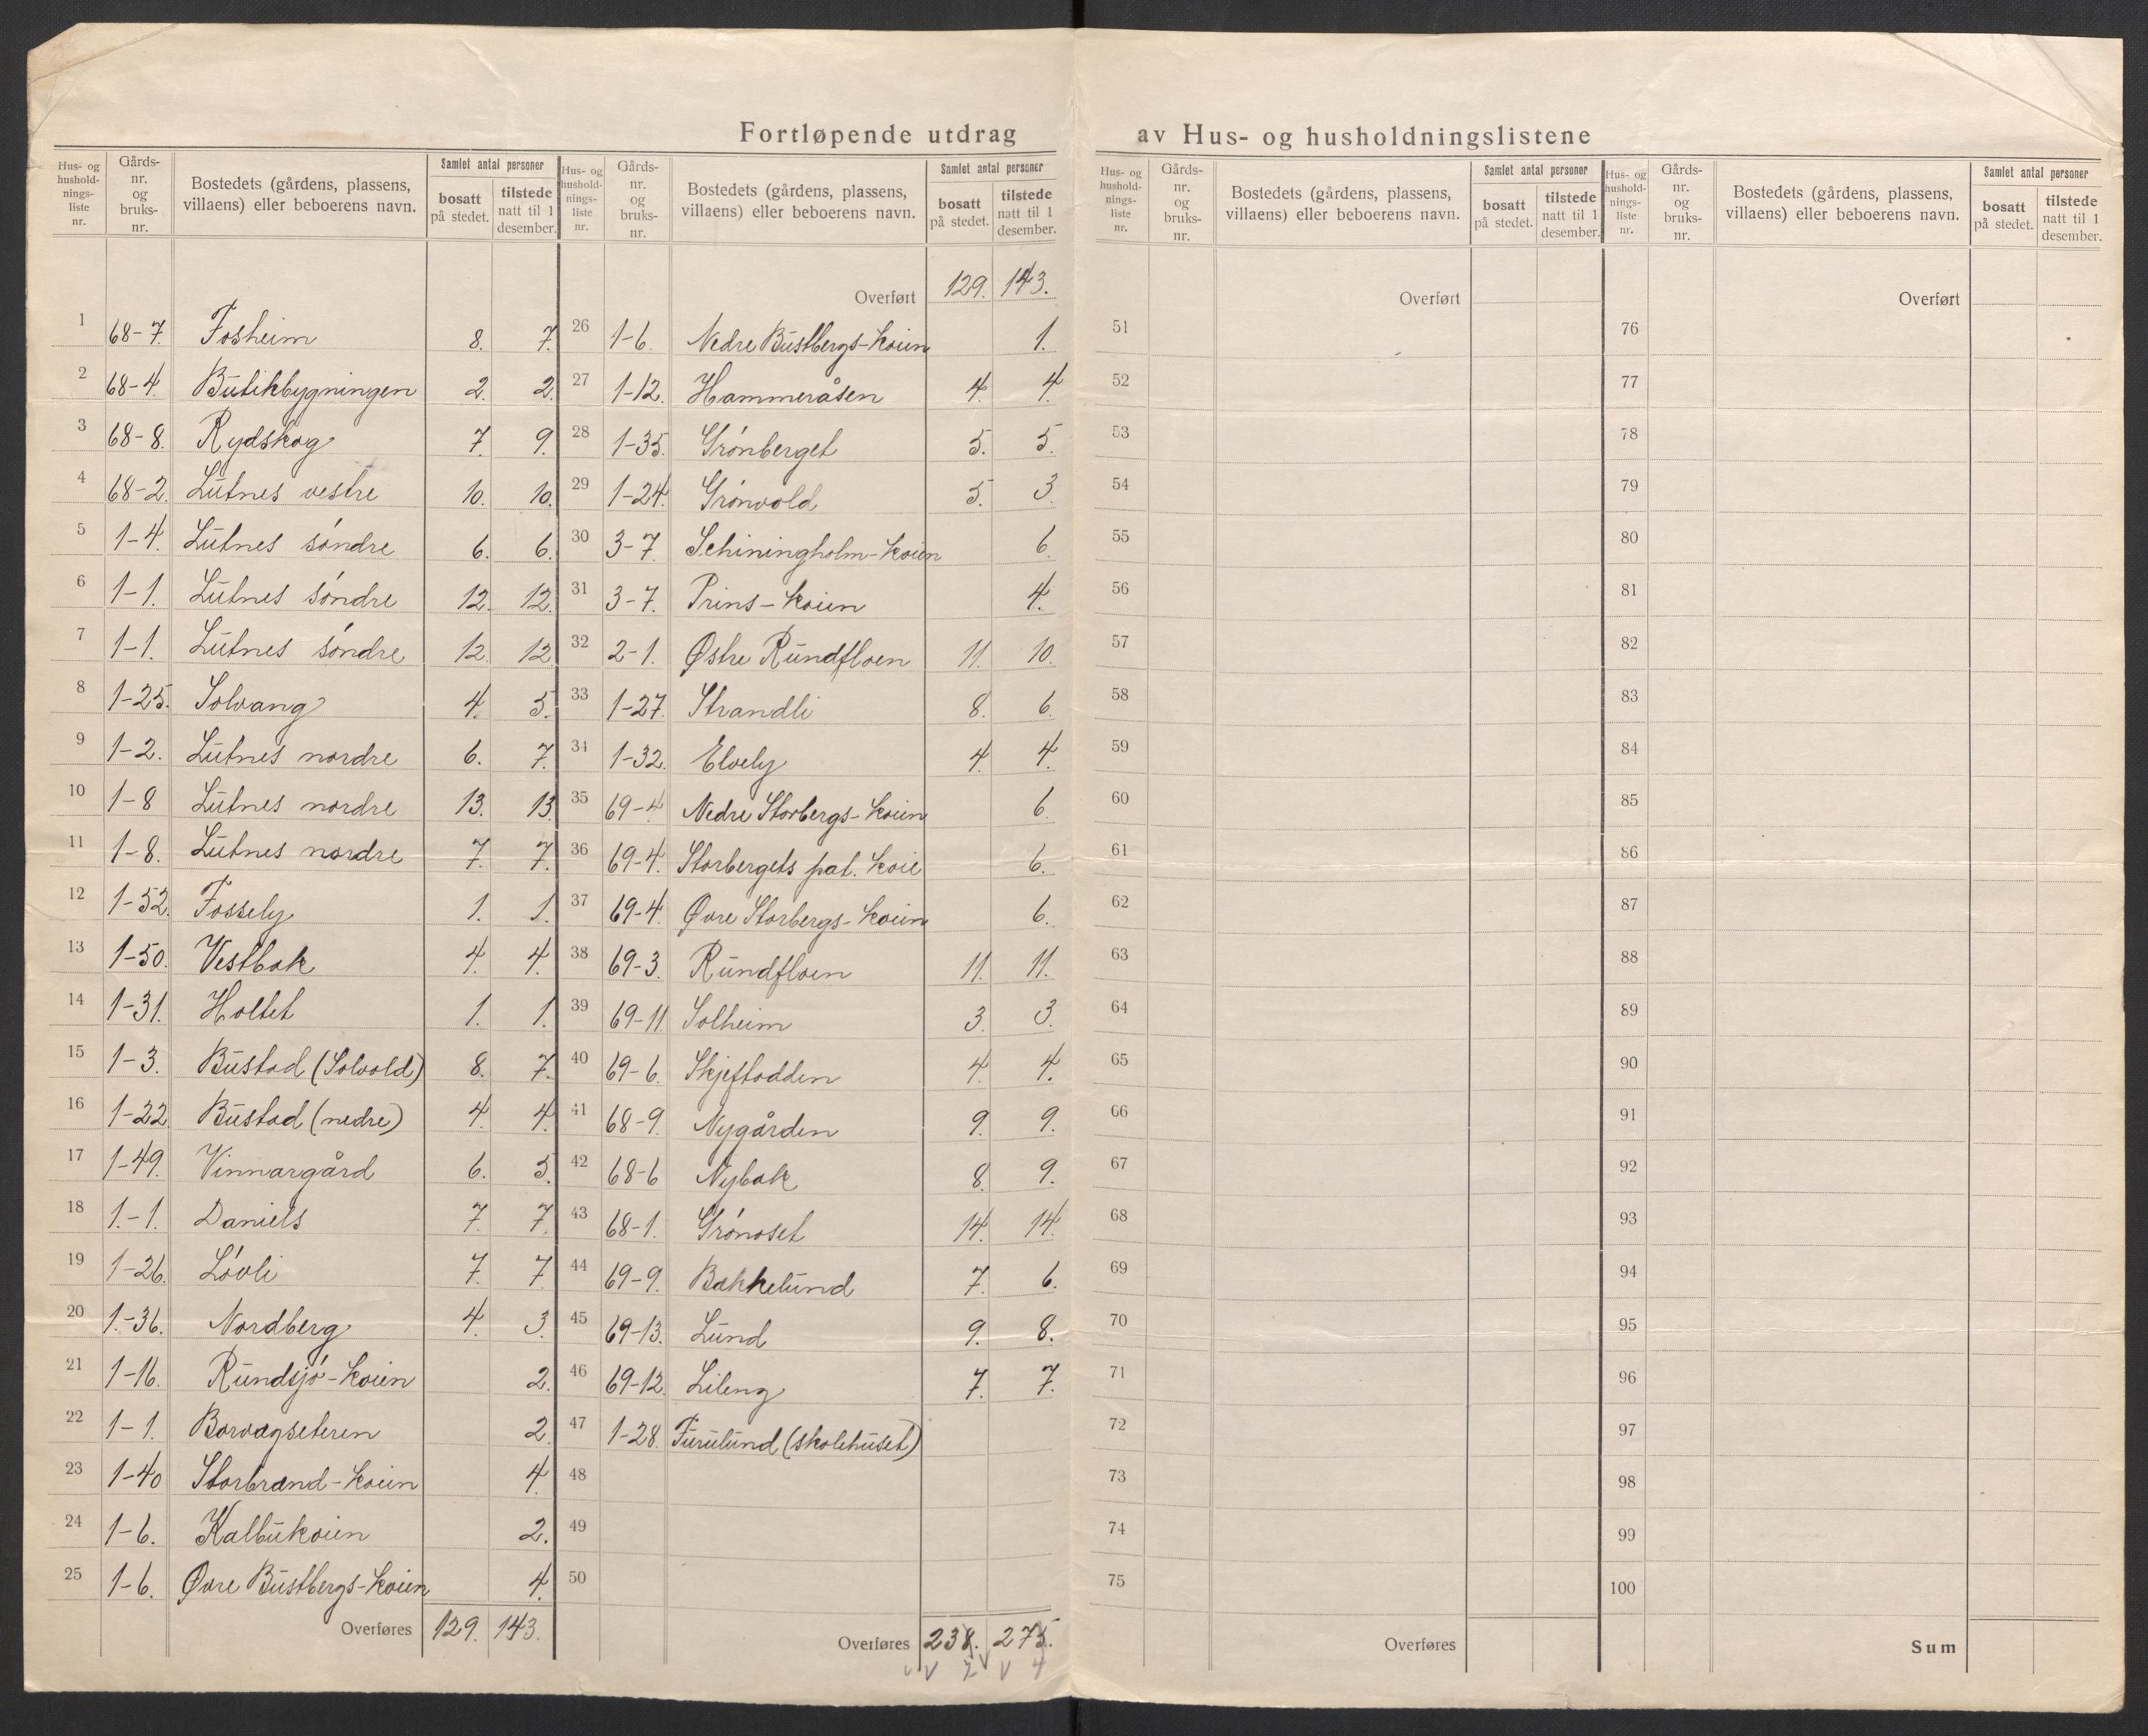 Fortløpende utdrag av Hus- og husholdningslistene
Hus- og husholdningsliste nr. Gårds-nr. og bruks-nr. Bostedets (gårdens, plassens, villaens) eller beboerens navn. Samlet antal personer bosatt på stedet. tilstede natt til 1 desember.
1 68-7. Fosheim 8. 7.
2 68-4. Butikbygningen 2. 2.
3 68-8. Rydskog 7. 9.
4 68-2. Lutnes vestre 10. 10.
5 1-4. Lutnes søndre 6. 6.
6 1-1. Lutnes søndre 12. 12.
7 1-1. Lutnes søndre 12. 12
8 1-25. Solvang 4. 5.
9 1-2. Lutnes nordre 6. 7.
10 1-8 Lutnes nordre 13. 13.
11 1-8. Lutnes nordre 7. 7.
12 1-52. Fossely 1. 1.
13 1-50. Vestbak 4. 4.
14 1-31. Holtet 1. 1.
15 1-3. Bustad (Solvold) 8. 7.
16 1-22. Bustad (nedre) 4. 4.
17 1-49. Vinnargård 6. 5.
18 1.-1. Daniels 7. 7.
19 1-26. Løvli 7. 7
20 1.-36. Nordberg 4. 3.
21 1-16. Rundsjø-koien 2.
22 1-1. Borvagseteren 2.
23 1-40 Storbrand-koien 4.
24 1-6. Kalbukoien 2.
25 1-6. Øvre Bustbergs-koien 4.
Overføres 129. 143.
Hus- og husholdningsliste nr. Gårds-nr. og bruks-nr. Bostedets (gårdens, plassens, villaens) eller beboerens navn. Samlet antal personer bosatt på stedet. tilstede natt til 1 desember.
Overført 129. 143.
26 1-6. Nedre Bustbergs-koien 1.
27 1-12. Hammeråsen 4. 4.
28 1-35. Grønberget 5. 5.
29 1-24. Grønvold 5. 3.
30 3-7. Schiningholm-koien 6.
31 3-7. Prins-koien 4.
32 2-1. Østre Rundfloen 11. 10.
33 1-27. Strandli 8. 6.
34 1-32. Elvely 4. 4.
35 69-4. Nedre Storbergs-koien 6.
36 69-4. Storbergets pat. koie 6.
37 69-4. Øvre Storbergs-koien 6.
38 69-3. Rundfloen 11. 11.
39 69-11. Solheim 3. 3.
40 69-6. Skjeftodden 4. 4.
41 68-9. Nygården 9. 9.
42 68-6 Nybak 8. 9.
43 68-1. Grønoset 14. 14.
44 69-9. Bakkelund 7. 6.
45 69-13. Lund 9. 8.
46 69-12. Lileng 7. 7.
47 1-28. Furulund (skolehuset)
48
49
50
Overføres 238. 275.
7 4
Hus- og husholdningsliste nr. Gårds-nr. og bruks-nr. Bostedets (gårdens, plassens, villaens) eller beboerens navn. Samlet antal personer bosatt på stedet. tilstede natt til 1 desember.
Overført
51
52
53
54
55
56
57
58
59
60
61
62
63
64
65
66
67
68
69
70
71
72
73
74
75
Overføres
Hus- og husholdningsliste nr. Gårds-nr. og bruks-nr. Bostedets (gårdens, plassens, villaens) eller beboerens navn. Samlet antal personer bosatt på stedet. tilstede natt til 1 desember.
Overført
76
77
78
79
80
81
82
83
84
85
86
87
88
89
90
91
92
93
94
95
96
97
98
99
100
Sum